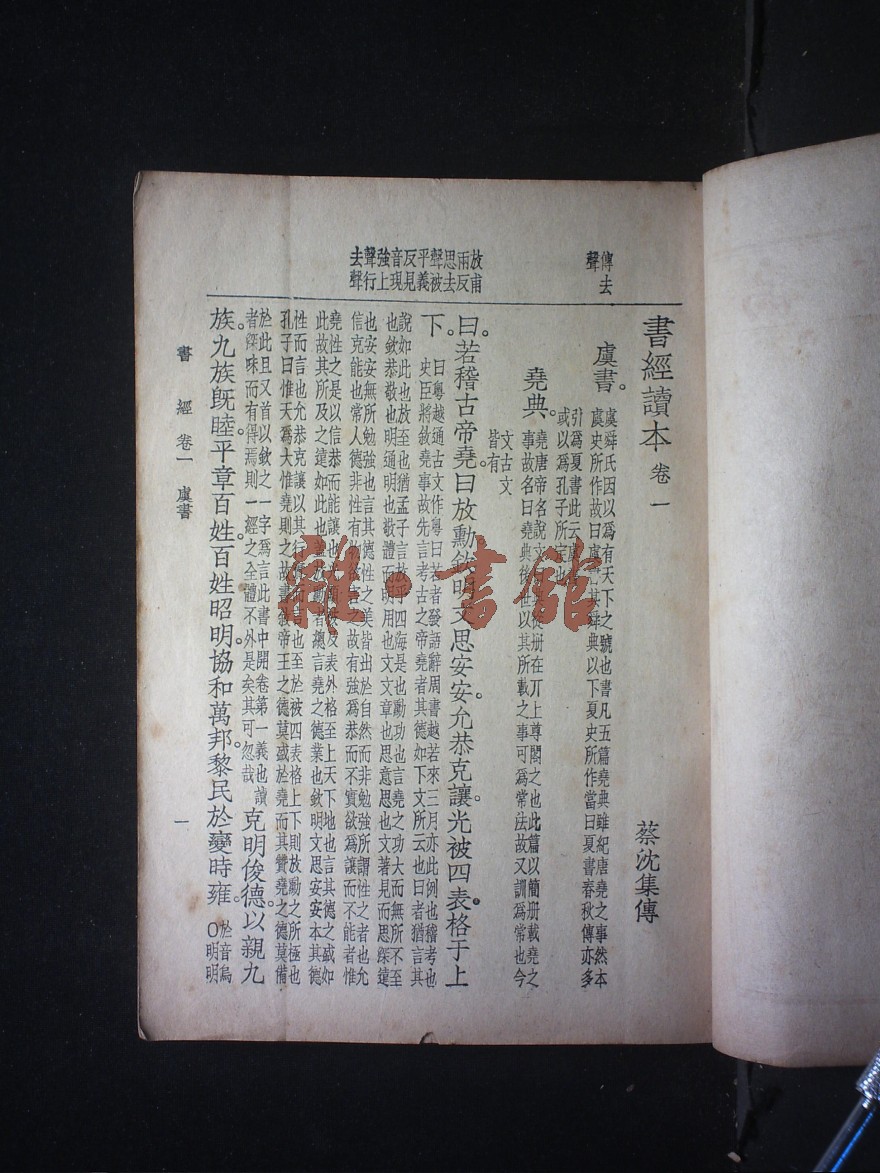 傳去
聲
放甫
兩反
思去
聲被
平義
反見
音現
強上
聲行
去聲
書經讀本 卷一
蔡沈集傳
虞書。
虞舜氏因以為有天下之號也書凡五篇堯典雖紀唐堯之事然本
虞史所作故曰虞 其舜典以下夏史所作當曰夏書春秋傳亦多
引為夏書此云
或以為孔子所定也
堯典
堯唐帝名說文 從冊在丌上尊閣之也此篇以簡冊載堯之
事故名曰堯典後世以其所載之事可為常法故又訓為常也今
文古文
皆有
曰。若稽古帝堯。曰放勳欽明文思安安。允恭克讓。光被四表。格于上
下。
曰粵越通古文作粵曰若者發語辭周書越若來三月亦此例也稽考也
史臣將敘堯事故先言考古之帝堯者其德如下文所云也曰者猶言其
說如此也放至也猶孟子言放乎四海是也勳功也言堯之功大而無所不至
也欽恭敬也明通明也敬體而明用也文文章也思意思也文著見而思深遠
也安安無所勉強也言其德性之美皆出於自然而非勉強所謂性之者也允
信克能也常人德非性有物欲害之故有強為恭而不實欲為讓而不能者惟
堯性之是以信恭而能讓也 表外格至上天下地也言其德之盛如
此故其所及之遠如此也蓋放勳者總言堯之德業也欽明文思安安本其德
性而言也允恭克讓以其行 而言也至於被四表格上下則放勳之所極也
孔子曰惟天為大惟堯則之故書敘帝王之德莫盛於堯而其贊堯之德莫備
於此且又首以欽之一字為言此書中開卷第一義也讀
者深味而有得焉則一經之全體不外是矣其可忽哉
克明俊德。以親九
族。九族既睦。平章百姓。百姓昭明。協和萬邦。黎民於變時雍。
於音烏
○明明
書經 卷一 虞書
一
雜·書館